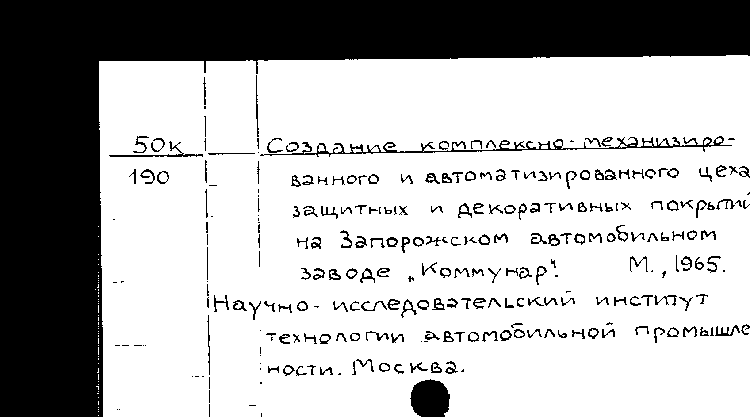 50к Создание комплексно-механизиро-
190 ванного и автоматизированного цеха
защитных и декоративных покрытий
на Запорожском автомобильном
заводе „Коммунар". М., 1965.
Научно-исследовательский институт
технологии автомобильной промышле
ности. Москва.